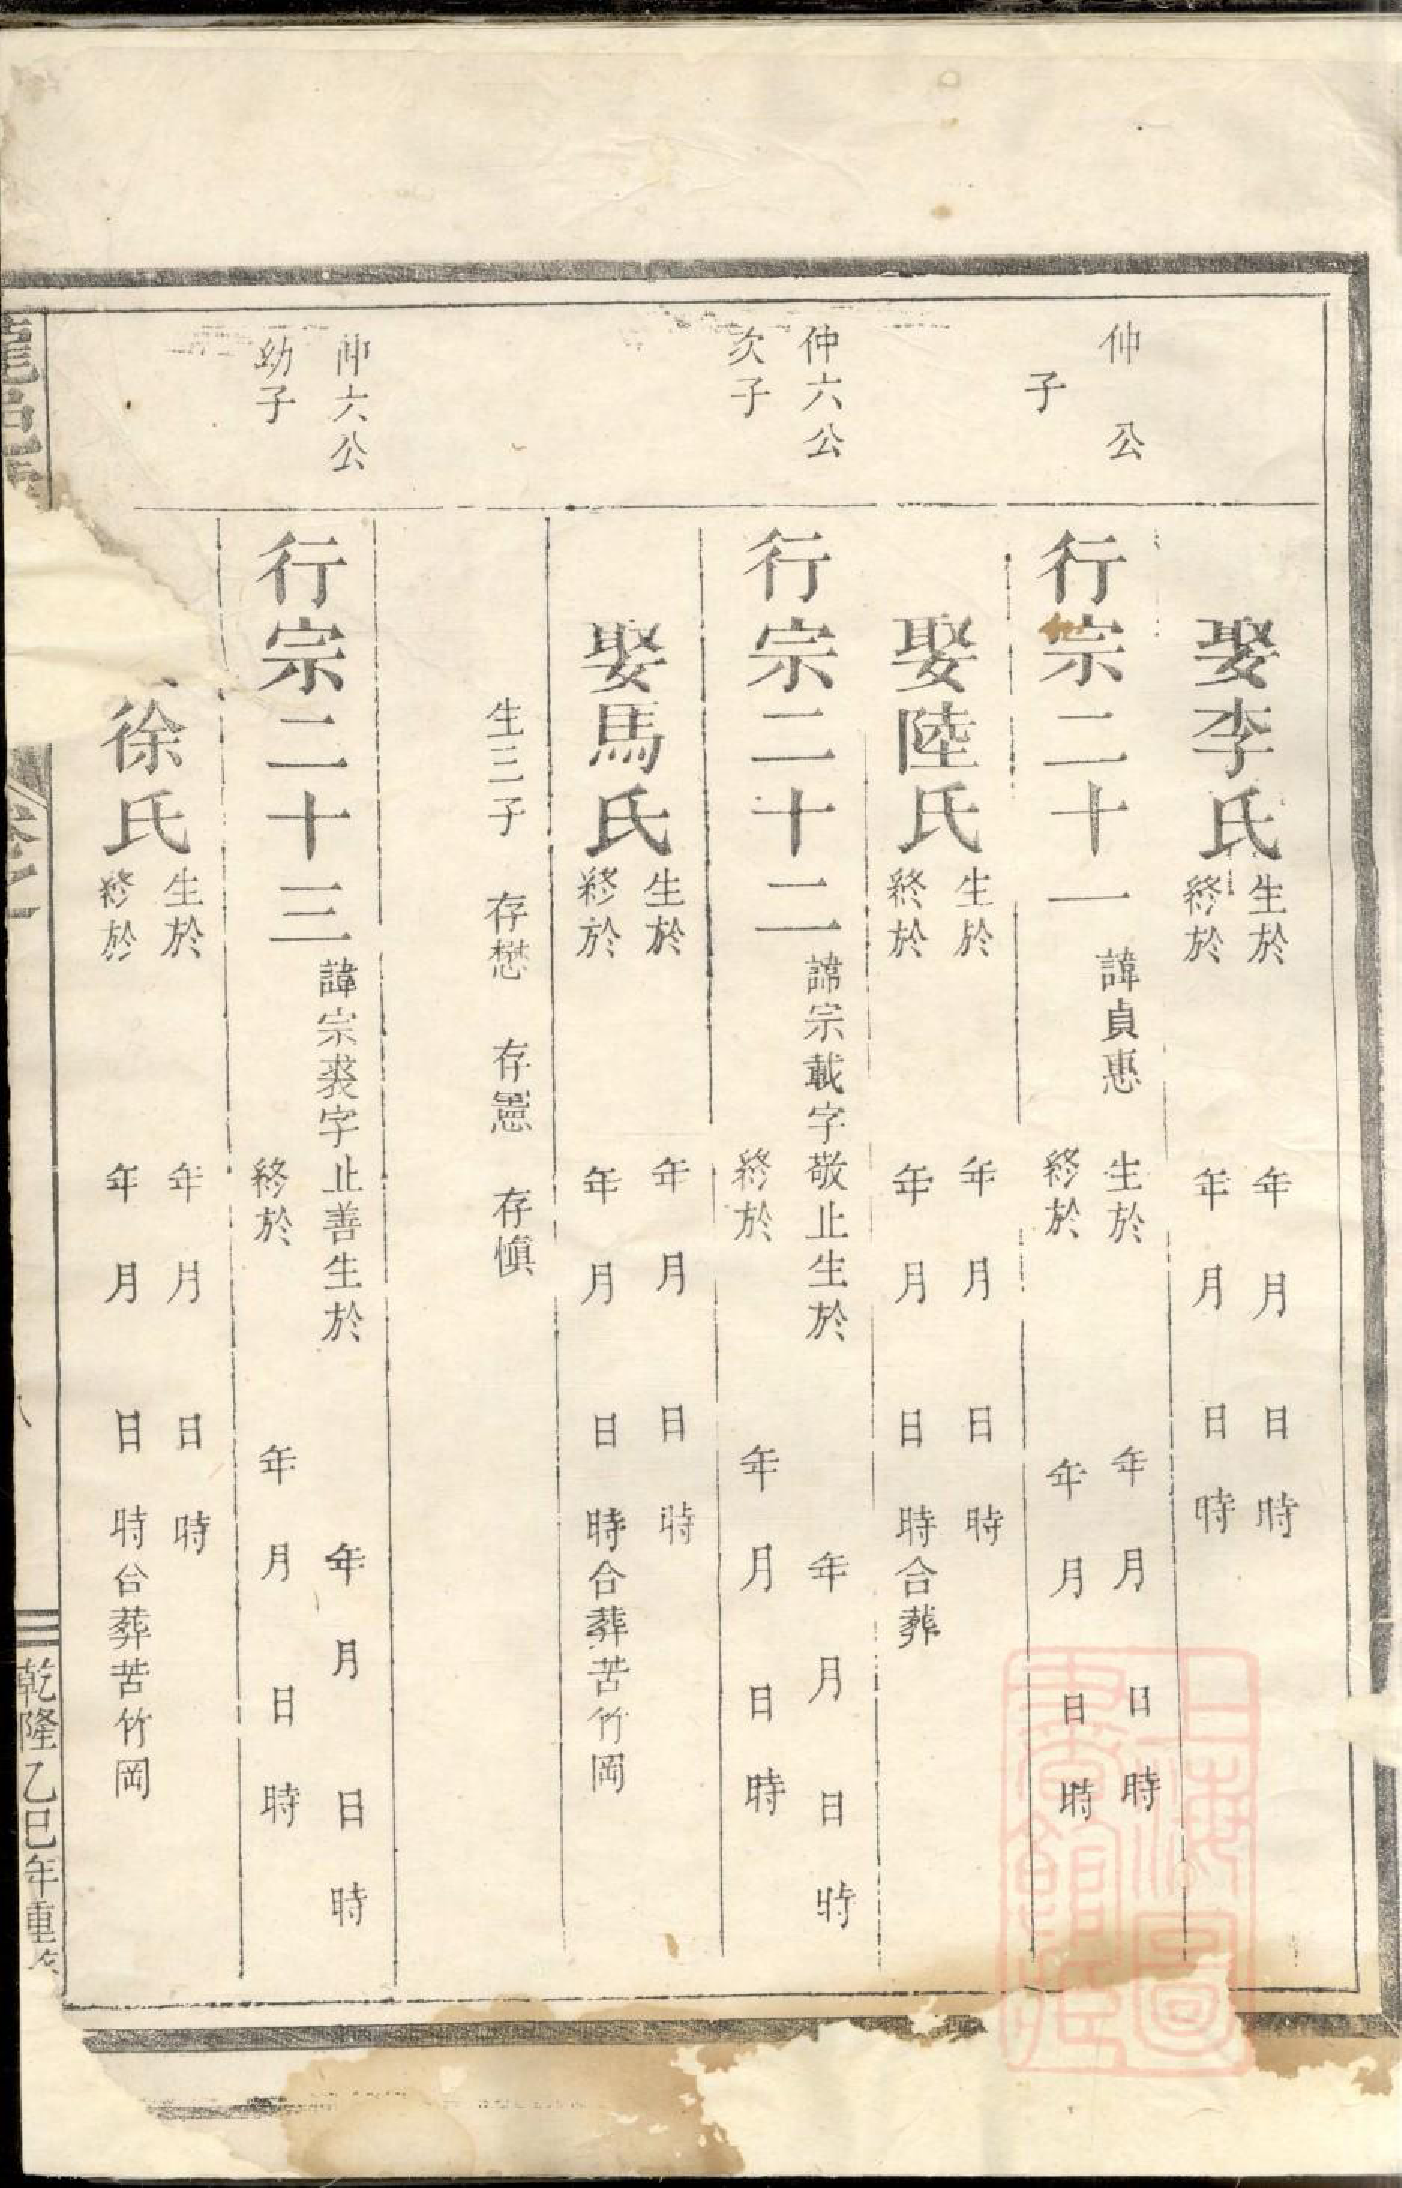 娶李氏
生於 年 月 日 時
終於 年 月 日 時
仲 公
子
行宗二十一
諱貞惠 生於 年 月 日 時
終於 年 月 日 時
娶陸氏
生於 年 月 日 時
終於 年 月 日 時合葬
仲六公
次子
行宗二十二
諱宗載字敬止生於 年 月 日 時
終於 年 月 日 時
娶馬氏
生於 年 月 日 時
終於 年 月 日 時合葬苦竹岡
生三子 存懋 存憲 存慎
仲六公
幼子
行宗二十三
諱宗裘字止善生於 年 月 日 時
終於 年 月 日 時
徐氏
生於 年 月 日 時
終於 年 月 日 時合葬苦竹岡
卷之一
八
乾隆乙巳年重修
上海圖
書館藏